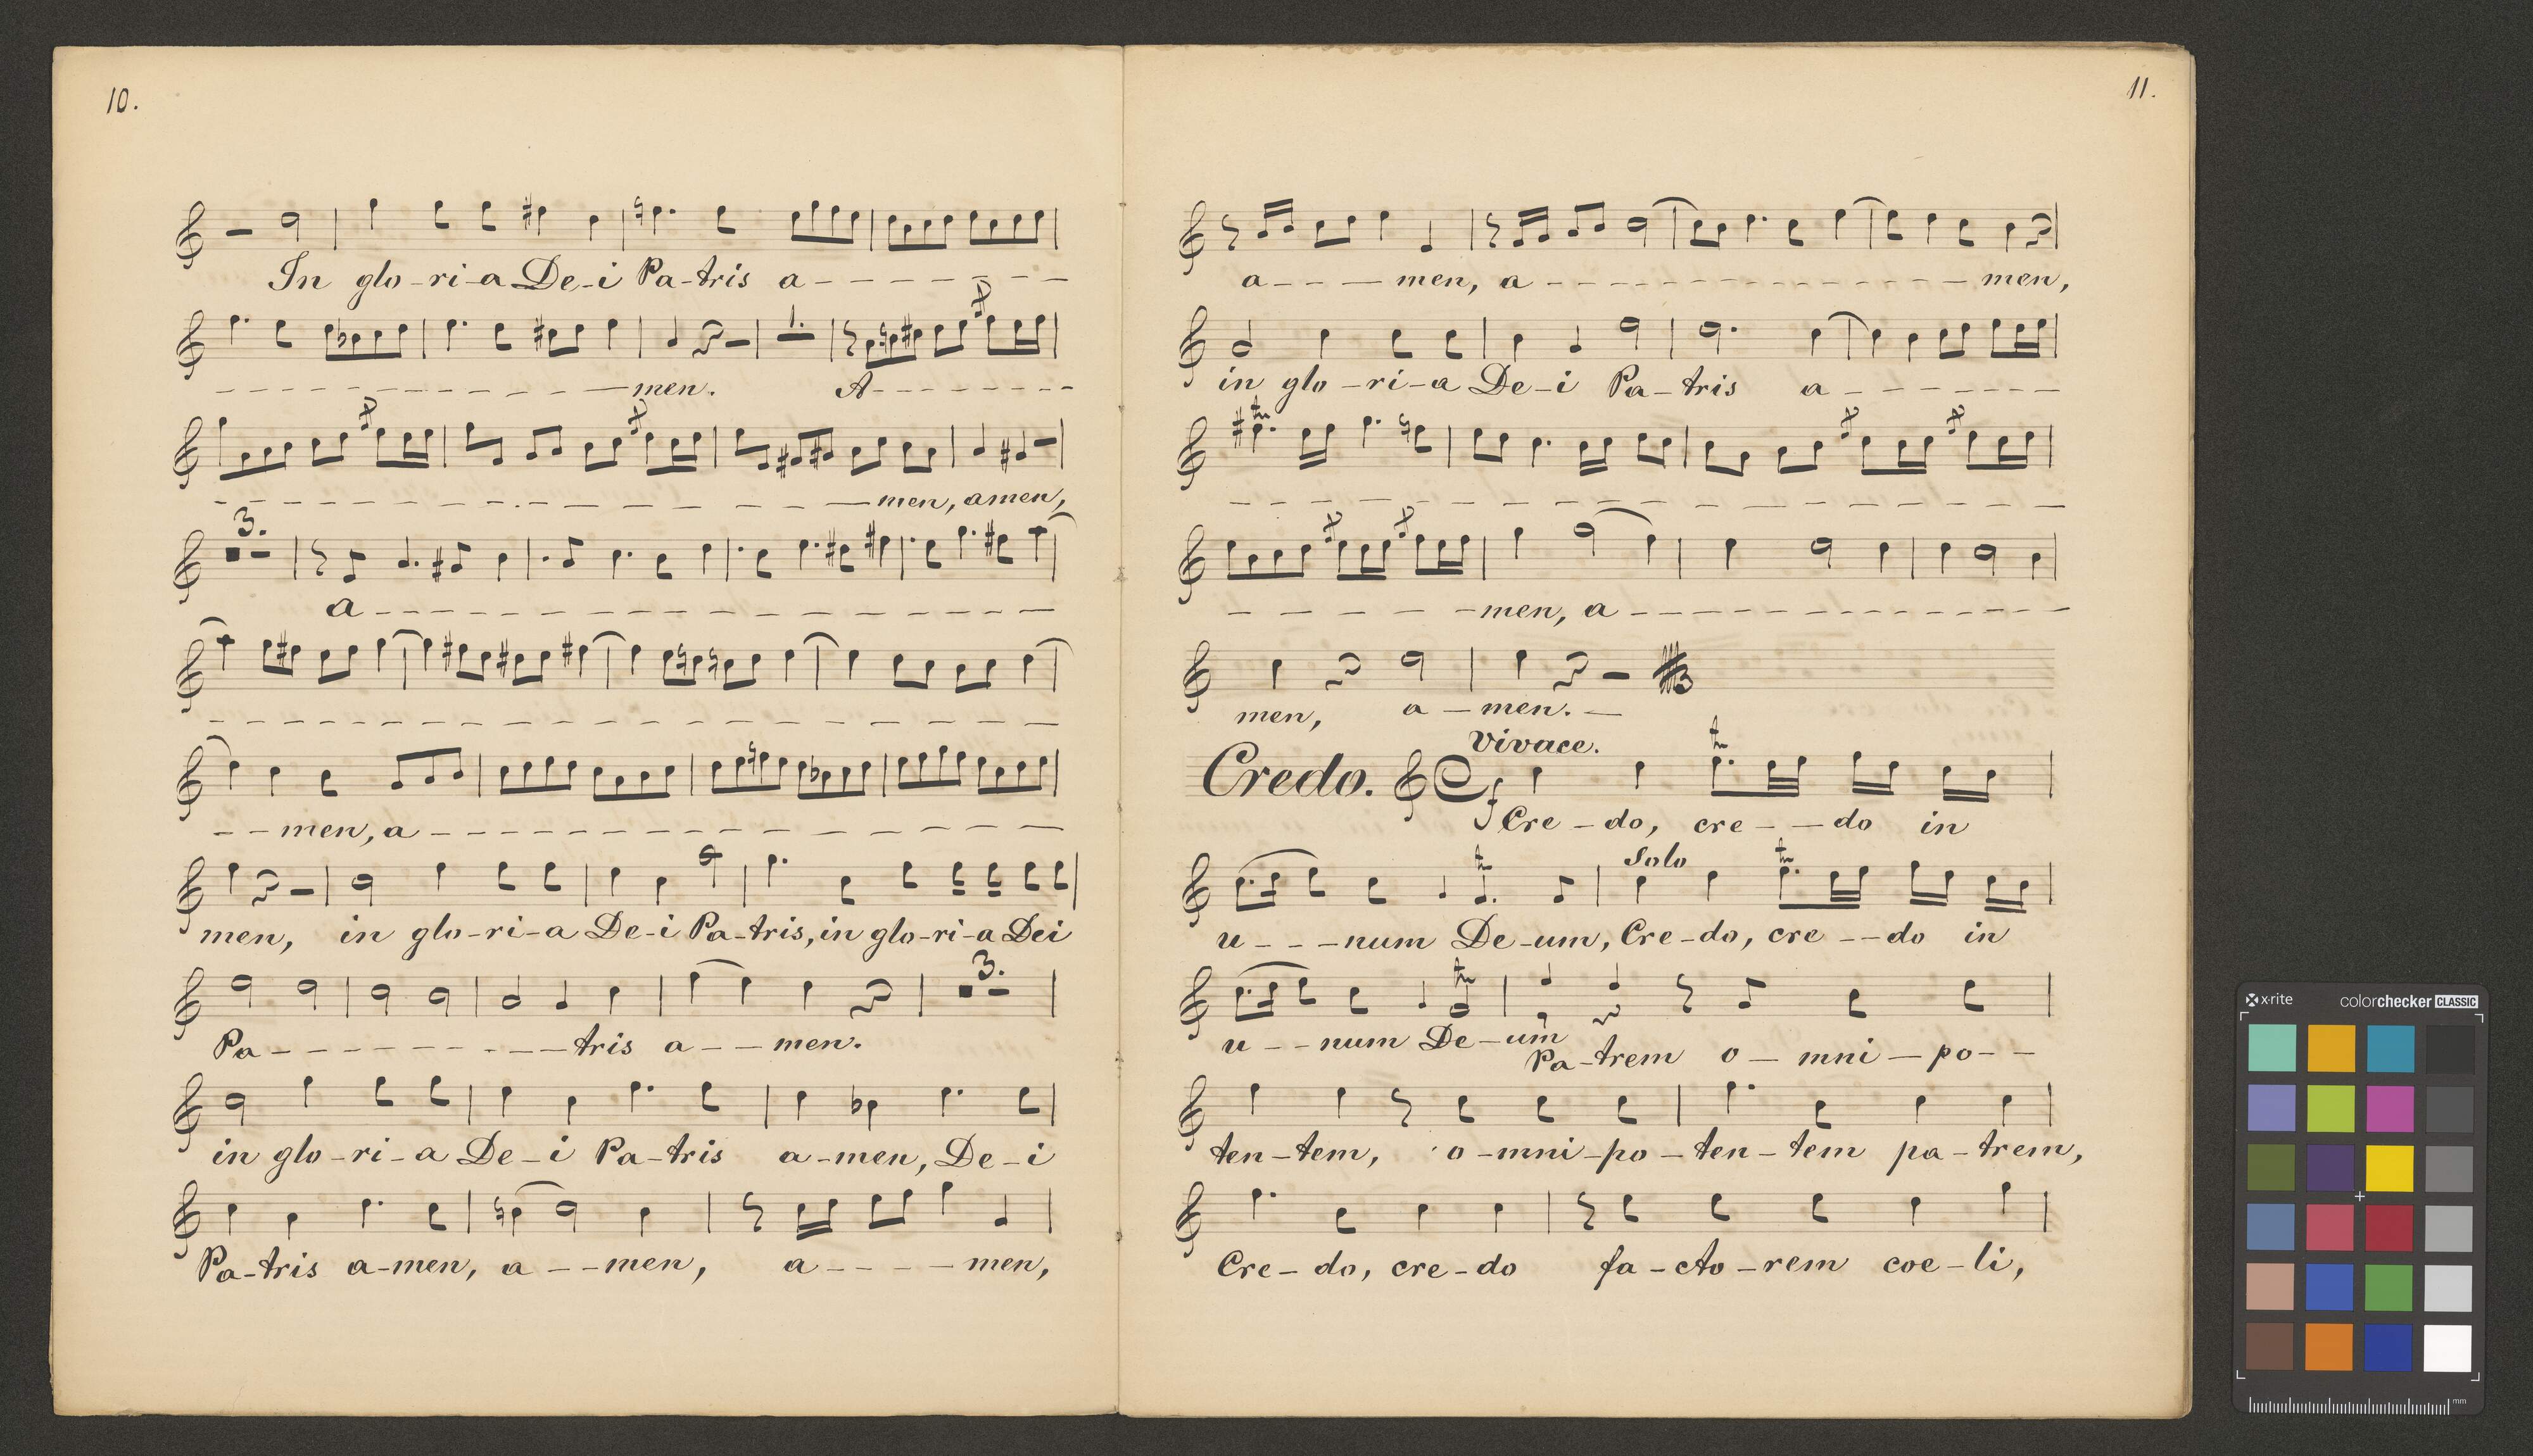 10.
In glo-ri-a De-i Pa-tris a - - - - - - -
- - - - - - - - - - men. A - - - - - -
- - - - - - - - - - - - men, amen,
3.
a - - - - - - - - - - - - - -
- - - - - - - - - - - - - - -
- - men, a - - - - - - - - - - - -
men, in glo-ri-a De-i Pa-tris, in glo-ri-a Dei
3.
Pa - - - - - - - - tris a - - men.
in glo-ri-a De-i Pa-tris a-men, De-i
Pa-tris a-men, a - - men, a - - - - men,
11.
a - - - men, a - - - - - - - - - - - - men,
in glo-ri-a De-i Pa-tris a - - - - - -
tr
- - - - - - - - - - - - - -
- - - - - men, a - - - - - - - - - - -
men, a - men. -
Vivace. tr
Credo. f Cre-do, cre - - do in
tr Solo tr
u - - - num De-um, Cre-do, cre - - do in
tr
u - - num De-um
Pa-trem o-mni-po - -
ten-tem, o-mni-po-ten-tem pa-trem,
Cre-do, cre-do fa-cto-rem coe-li,
x-rite colorchecker CLASSIC
mm